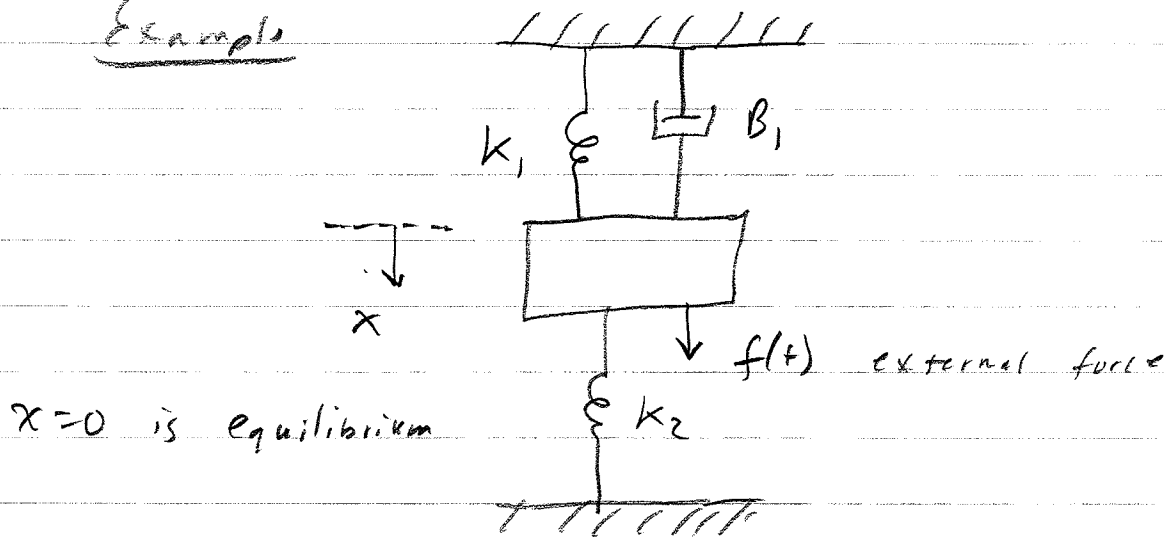 Example
K₁
B₁
x
f(t) external force
x=0 is equilibrium
K₂